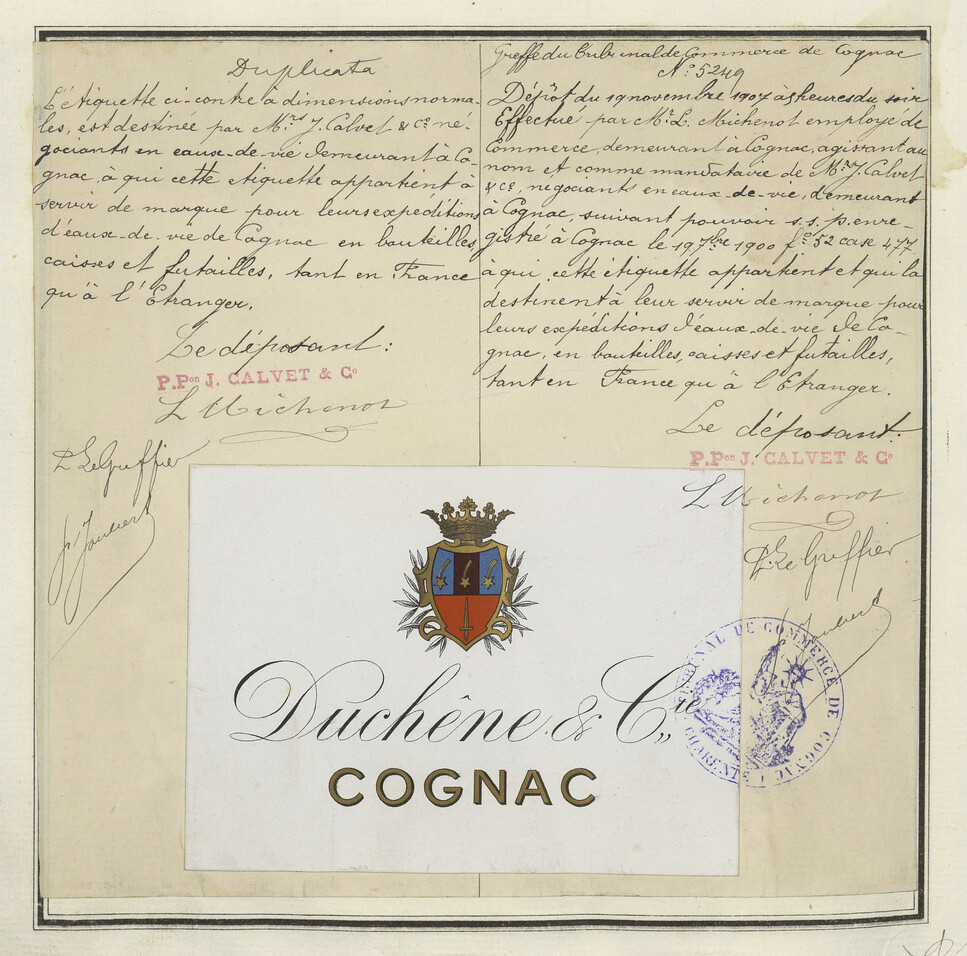 Duplicata
L'étiquette ci-contre à dimensions norma-
les, est destinée par Mrs J. Calvet & Ce né-
gociants en eaux-de-vie demeurant à Co-
gnac, à qui cette etiquette appartient, à
servir de marque pour leurs expeditions
d'eaux-de-vie de Cognac en bouteilles,
caisses et futailles, tant en France
qu'à l'Etranger.
Le déposant:
P.Pon J. CALVET & Co
L Michenot
P. Le Greffier
Joubert
Greffe du Tribunal de Commerce de Cognac
No 5249
Dépôt du 19 novembre 1907 à 5 heures du soir
Effectué par Mr L. Michenot employé de
Commerce, demeurant à Cognac, agissant au
nom et comme mandataire de Mrs J. Calvet
& Ce, negociants en eaux-de-vie, demeurant
à Cognac, suivant pouvoir s.s.p. enre-
gistré à Cognac le 19 7bre 1900 fo 52 case 477
à qui cette étiquette appartient et qui la
destinent à leur servir de marque pour
leurs expéditions d'eaux-de-vie de Co-
gnac, en bouteilles, caisses et futailles,
tant en France qu'à l'Etranger.
Le déposant:
P.Pon J. CALVET & Co
L Michenot
P. Le Greffier
Joubert
Duchêne & Cie
COGNAC
TRIBUNAL DE COMMERCE DE COGNAC
CHARENTE